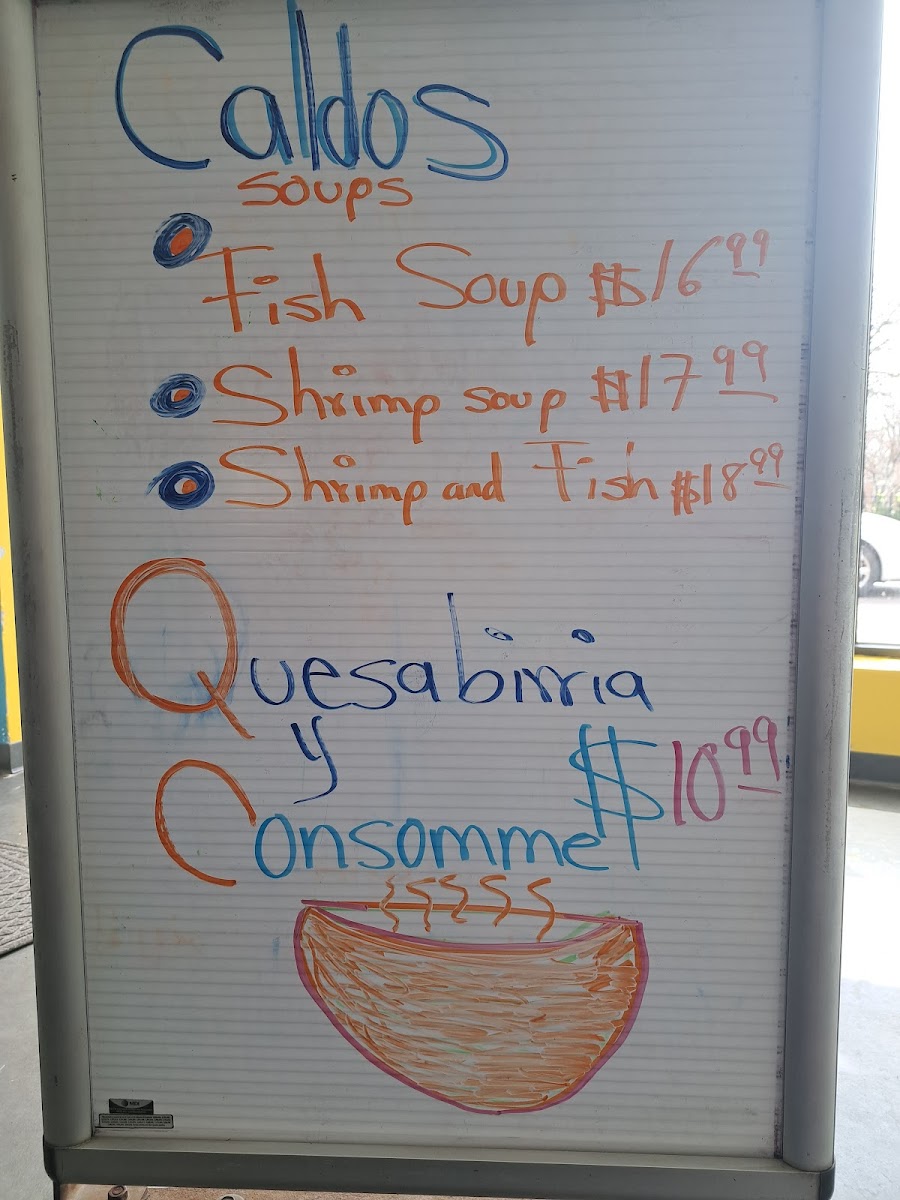 Caldos
soups
Fish Soup $16.99
Shrimp soup $17.99
Shrimp and Fish $18.99
Quesabirria
y
$10.99
Consomme